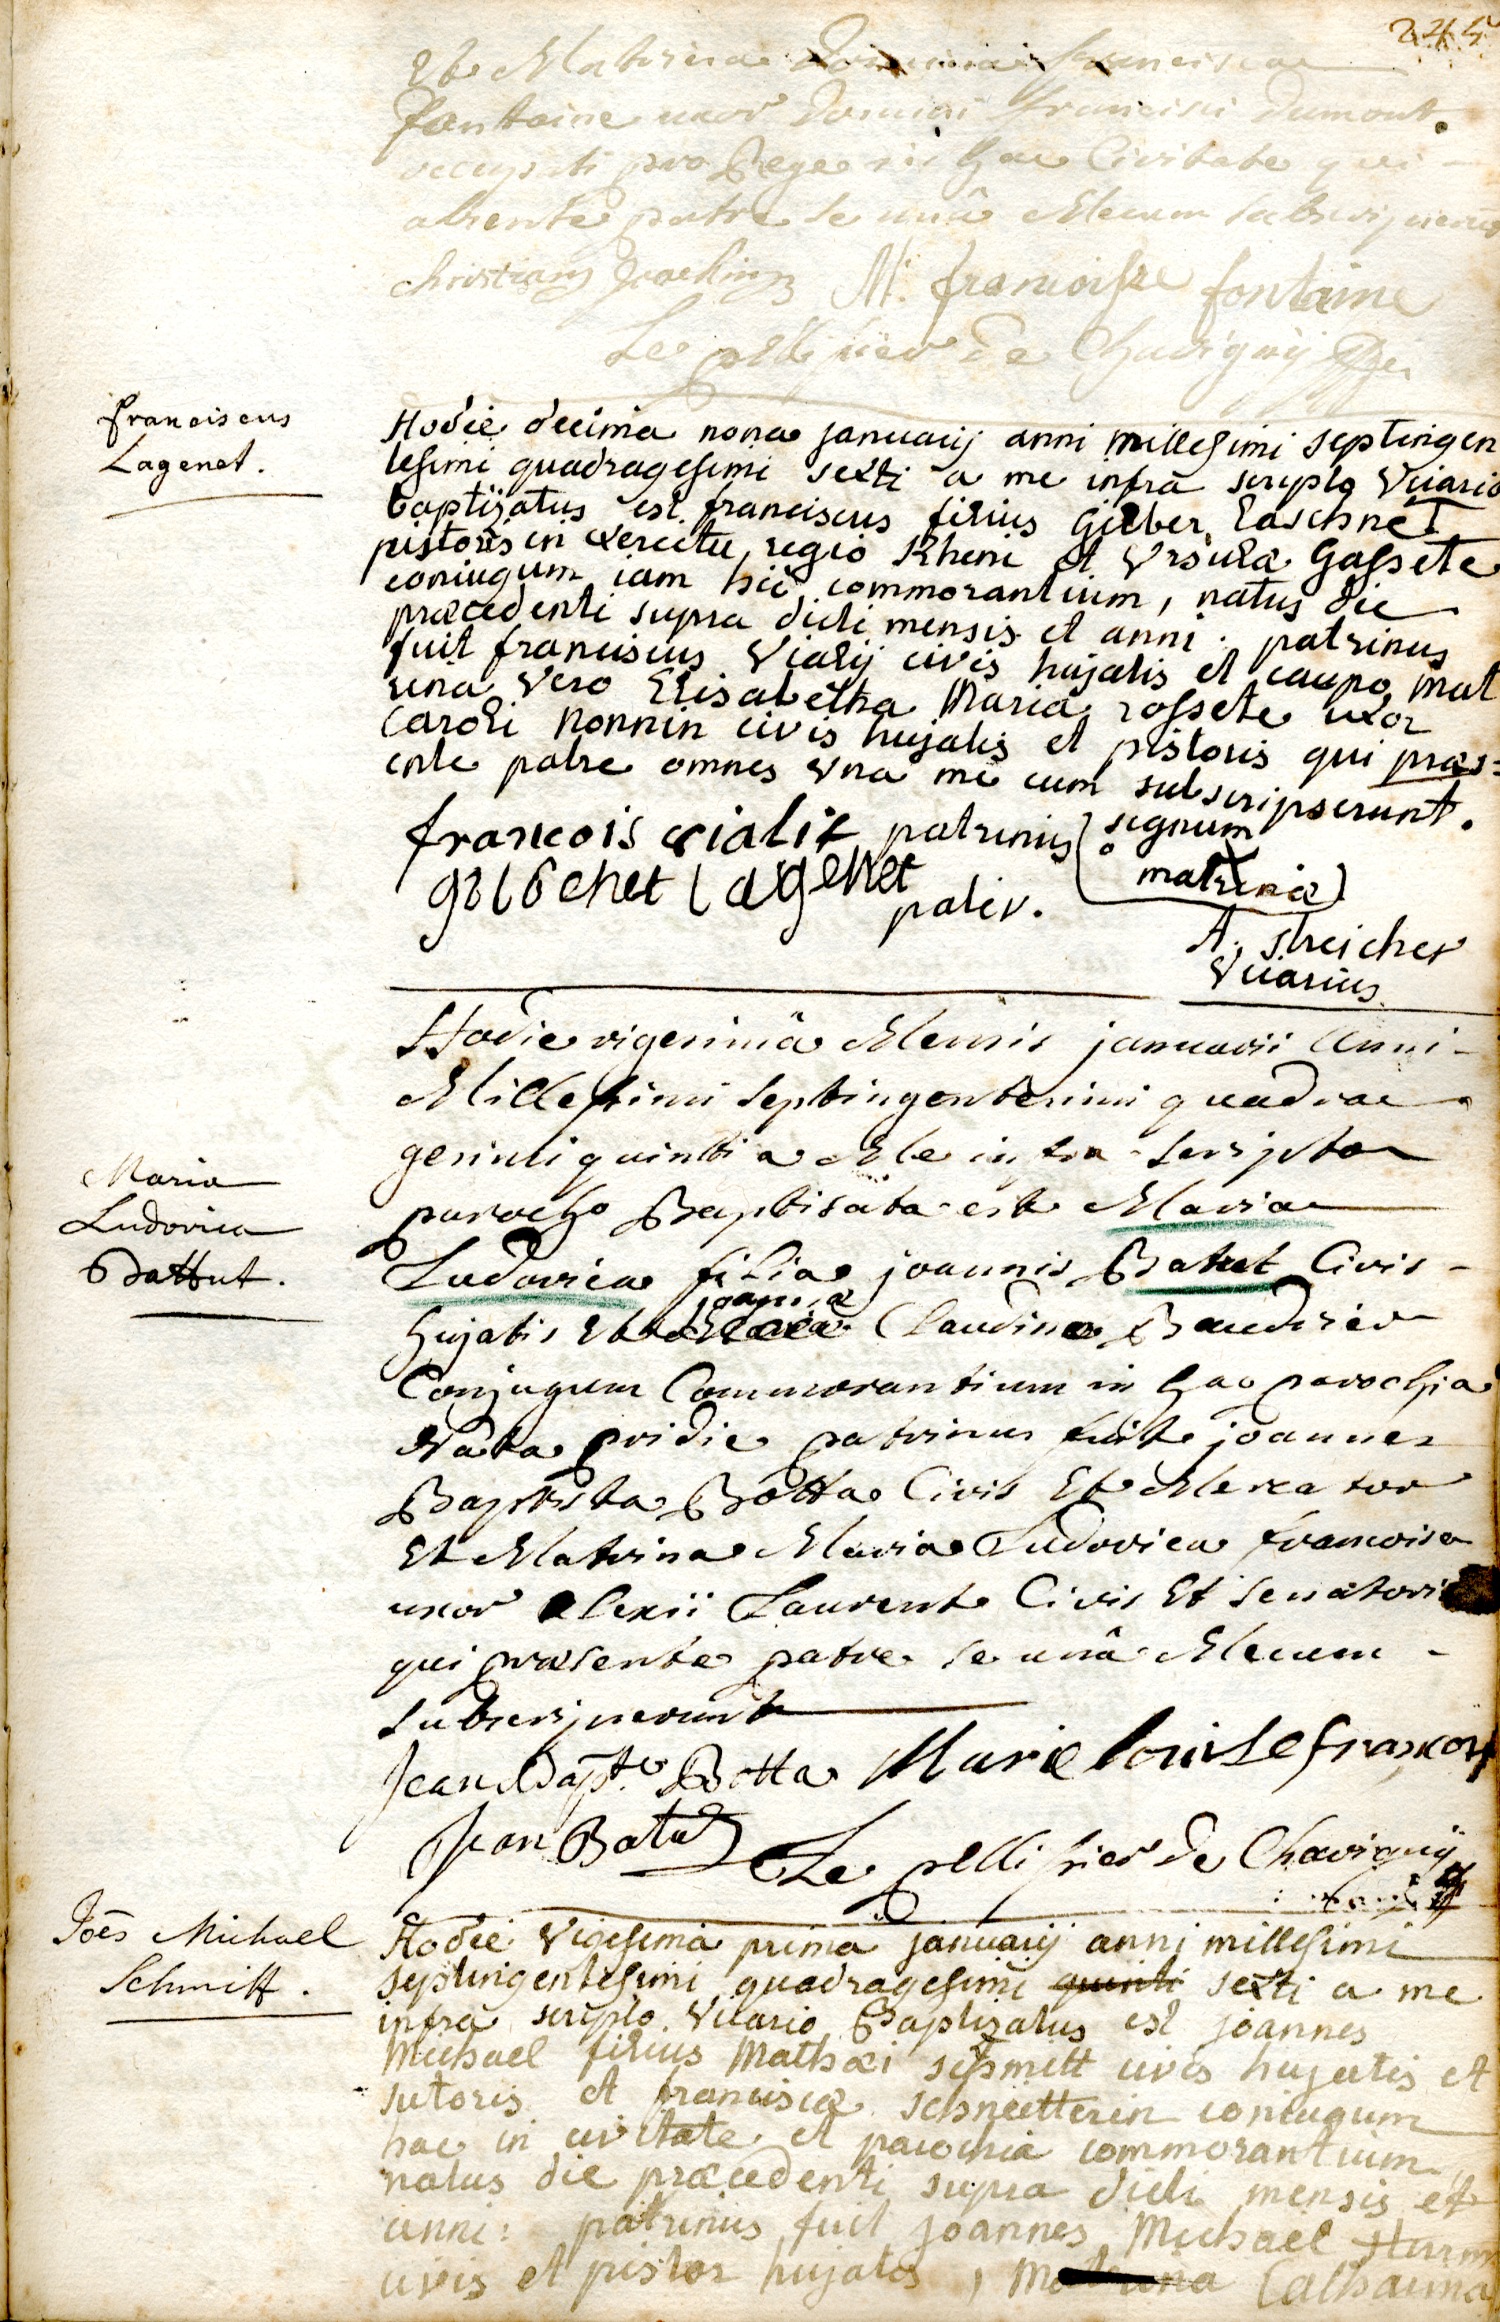 245
Et Matrina Domina francisca
fontaine uxor Domini francisci Dumont
pro Rege in hac Civitate qui
absente patre se unâ Mecum subscripserunt
christian Joachim M. francoisse fontaine
Le pellitier de Chavigny
franciscus
Lagenet.
Hodie decima nona januarij anni millesimi septingen
tesimi quadragesimi sexti a me infra scripto Vicario
baptizatus est franciscus filius Gilber Laschnet
pistoris in exercitu regio Rheni et Vrsulæ Gassete
coniugum iam hic commorantium, natus die
præcedenti supra dicti mensis et anni. patrinus
fuit franciscus Vialij civis hujatis et caupo, mat
rina Vero Elisabetha Maria rossete uxor
Caroli Nonnin civis hujatis et pistoris qui præs=
ente patre omnes Vna me cum subscripserunt.
francois vialit patrinus signum
matrinæ
gilbehet lagenet pater.
A. streicher
Vicarius
Hodie vigesimâ Mensis januarii Anni
Millesimi septingentesimi quadra
gesimi quinti a Me infra scripto
parocho Baptisata est Maria
Maria
Ludovica
Battut.
Ludovica filia joannis Batut Civis
joanna
hujatis Et Claudinæ Baudrier
Conjugum Commorantium in hac parochia
Nata pridie patrinus fuit joannes
Baptista Botta Civis Et Mercator
Et Matrina Maria Ludovica francoise
uxor Alexii Laurent Civis Et senatoris
qui præsente patre se unâ Mecum
subscripserunt
Jean Bapt. Botta Marie louise francois
Jean Batut Le pellitier de Chavigny
Joẽs Michael
Schmitt.
Hodie Vigesima prima januarij anni millesimi
septingentesimi quadragesimi quinti sexti a me
infra scripto Vicario Baptizatus est joannes
Michael filius Mathæi schmitt civis hujatis et
sutoris et franciscæ schneitterin coniugum
hac in civitate et parochia commorantium
natus die præcedenti supra dicti mensis et
anni: patrinus fuit joannes Michael
civis et pistor hujatis, Matrina Catharina